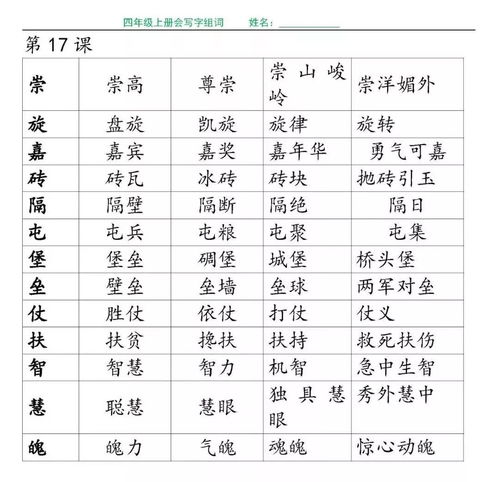 四年级上册会写字组词 姓名：____________
第 17 课
崇 崇高 尊崇 崇山峻岭 崇洋媚外
旋 盘旋 凯旋 旋律 旋转
嘉 嘉宾 嘉奖 嘉年华 勇气可嘉
砖 砖瓦 冰砖 砖块 抛砖引玉
隔 隔壁 隔断 隔绝 隔日
屯 屯兵 屯粮 屯聚 屯集
堡 堡垒 碉堡 城堡 桥头堡
垒 壁垒 垒墙 垒球 两军对垒
仗 胜仗 依仗 打仗 仗义
扶 扶贫 搀扶 扶持 救死扶伤
智 智慧 智力 机智 急中生智
慧 聪慧 慧眼 独具慧眼 秀外慧中
魄 魄力 气魄 魂魄 惊心动魄